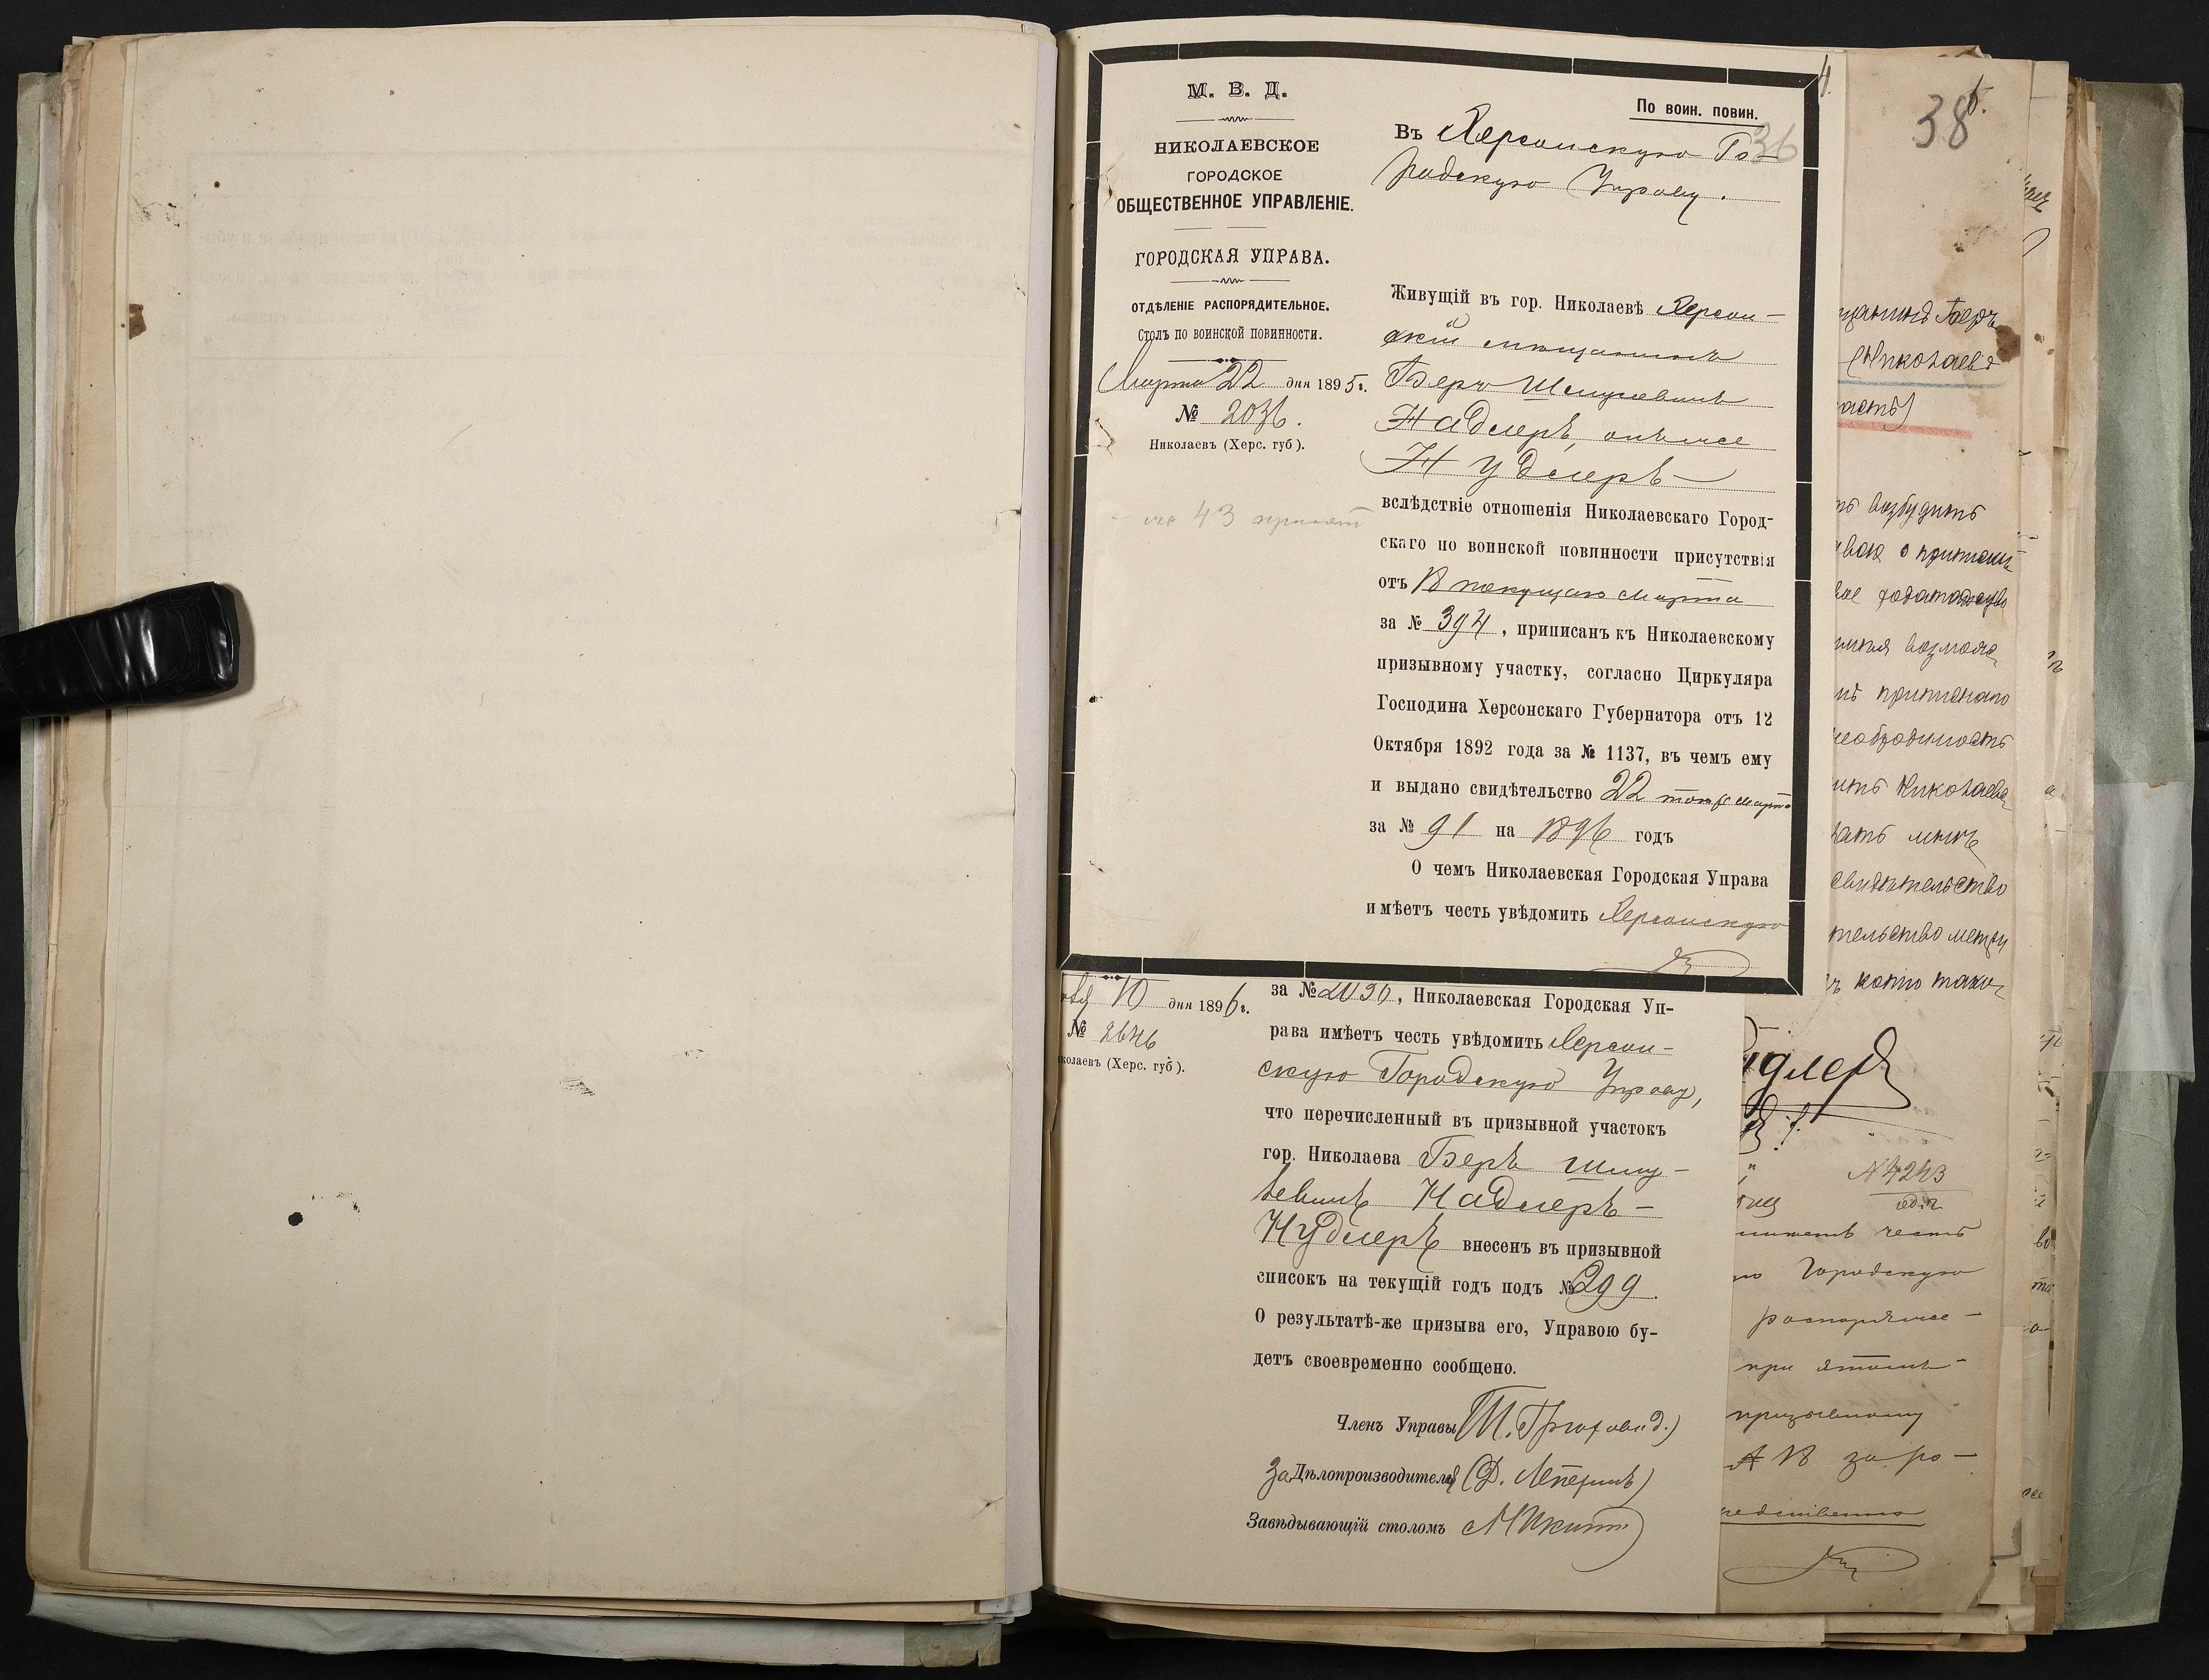 М. В. Д.
НИКОЛАЕВСКОЕ
ГОРОДСКОЕ
ОБЩЕСТВЕННОЕ УПРАВЛЕНІЕ.
ГОРОДСКАЯ УПРАВА.
ОТДѢЛЕНІЕ РАСПОРЯДИТЕЛЬНОЕ.
Столъ по воинской повинности.
Марта 22 дня 1895 г.
№ 2036.
Николаевъ (Херс. губ).
По воин. повин.
36
Въ Херсонскую Го-
родскую Управу.
Живущій въ гор. Николаевѣ Херсон-
скій мѣщанинъ
Беръ Шмулевичъ
Надлеръ, онъ же
Нудлеръ
вслѣдствіе отношенія Николаевскаго Город-
скаго по воинской повинности присутствія
отъ 18 текущаго Марта
за № 394, приписанъ къ Николаевскому
призывному участку, согласно Циркуляра
Господина Херсонскаго Губернатора отъ 12
Октября 1892 года за № 1137, въ чемъ ему
и выдано свидѣтельство 22 того ж Марта
за № 91 на 1896 годъ
О чемъ Николаевская Городская Управа
имѣетъ честь увѣдомить Херсонскую
дня 1896 г.
№ 2646
колаевъ (Херс. губ).
за № 2030, Николаевская Городская Уп-
рава имѣетъ честь увѣдомить Херсон-
скую Городскую Управу,
что перечисленный въ призывной участокъ
гор. Николаева Беръ Шму-
левичъ Надлеръ-
Нудлеръ внесенъ въ призывной
списокъ на текущій годъ подъ № 299.
О результатѣ-же призыва его, Управою бу-
детъ своевременно сообщено.
Членъ Управы
За Дѣлопроизводителя
Завѣдывающій столомъ
38
щанинъ Беръ
Николаевъ
ласть)
ть возбудить
вое ходатайство
необходимость
ить Николаев
дать мнѣ
свидѣтельство
копію
длеръ
№ 4243
имѣетъ честь
Городскую
распоряже-
при этомъ
призывному
№ 18 за ро-